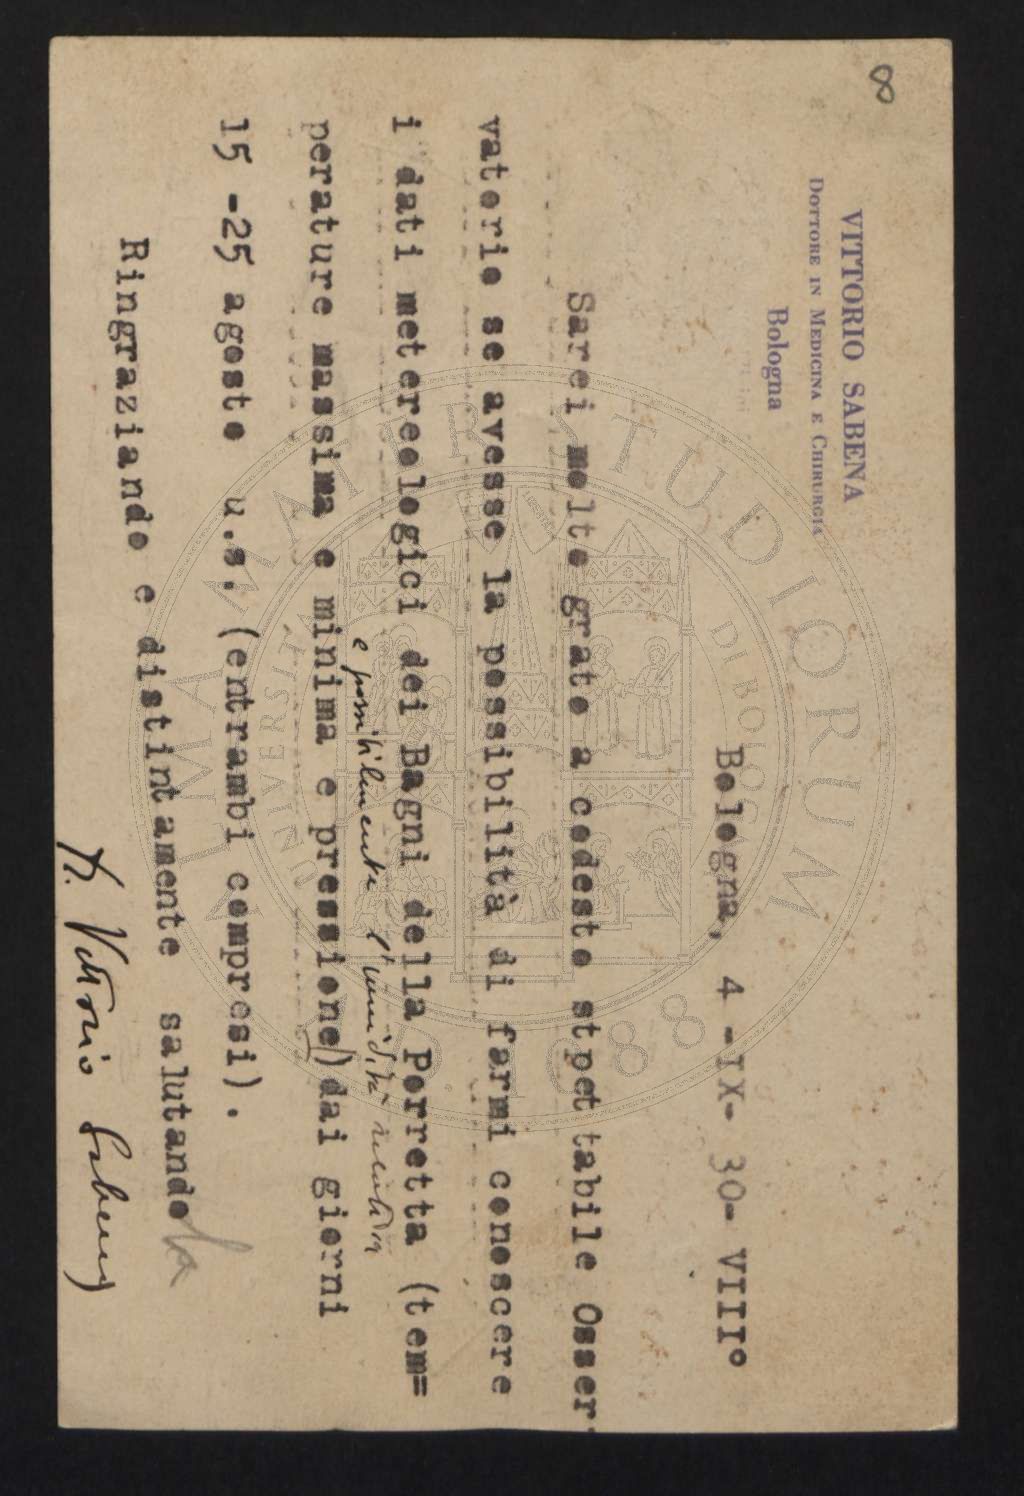 8
VITTORIO SABENA
DOTTORE IN MEDICINA E CHIRURGIA
Bologna
Bologna, 4 -IX- 30- VIII°
Sarei molto grato a codesto stpettabile Osser
vatorio se avesse la possibilità di farmi conoscere
i dati metereologici dei Bagni della Porretta (tem=
e possibilmente l'umidità relativa
perature massima e minima e pressione) dai giorni
15 -25 agosto u.s. (entrambi compresi).
Ringraziando e distintamente salutando la
Dr. Vittorio Sabena
ALMA MATER STUDIORUM
UNIVERSITÀ DI BOLOGNA
A.D. 1088